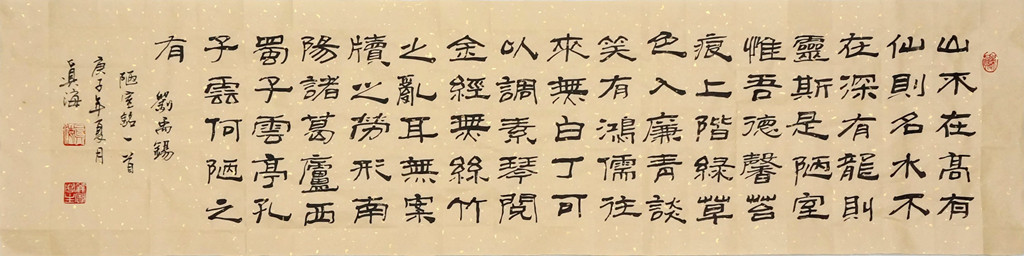 山不在高有
仙則名水不
在深有龍則
靈斯是陋室
惟吾德馨苔
痕上階緑草
色入廉青談
笑有鴻儒往
來無白丁可
以調素琴閱
金經無絲竹
之亂耳無案
牘之勞形南
陽諸葛廬西
蜀子雲亭孔
子雲何陋之
有
劉禹錫
陋室銘一首
庚子年夏月
海